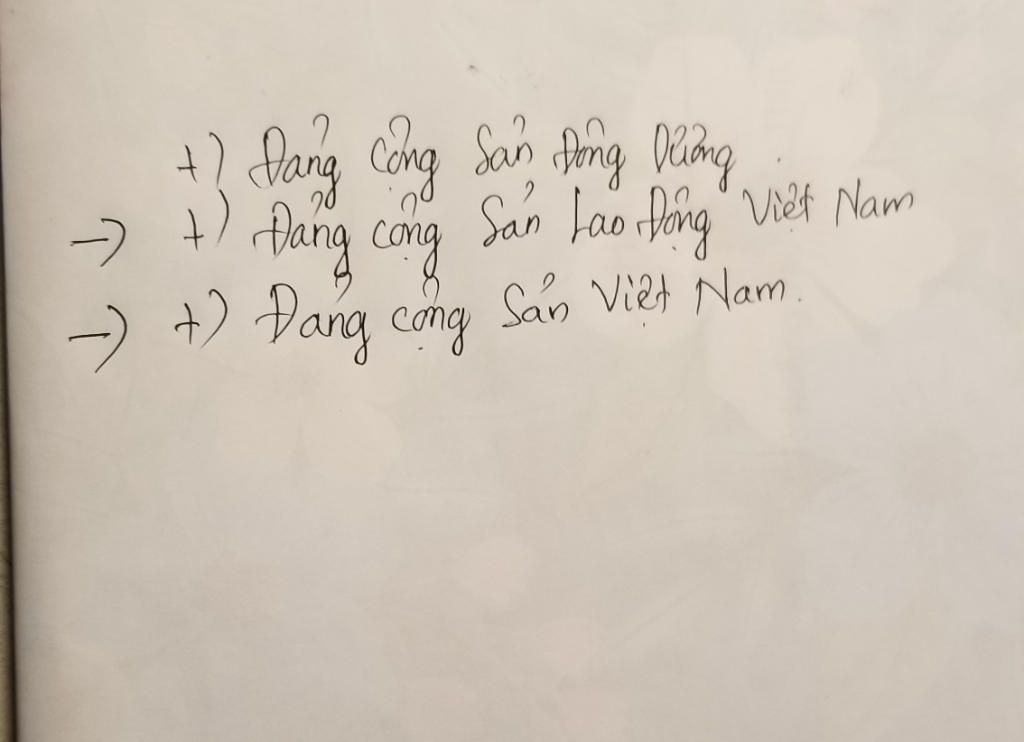 +) Đảng Cộng Sản Đông Dương.
-> +) Đảng cộng Sản Lao Động Việt Nam
-> +) Đảng cộng Sản Việt Nam.